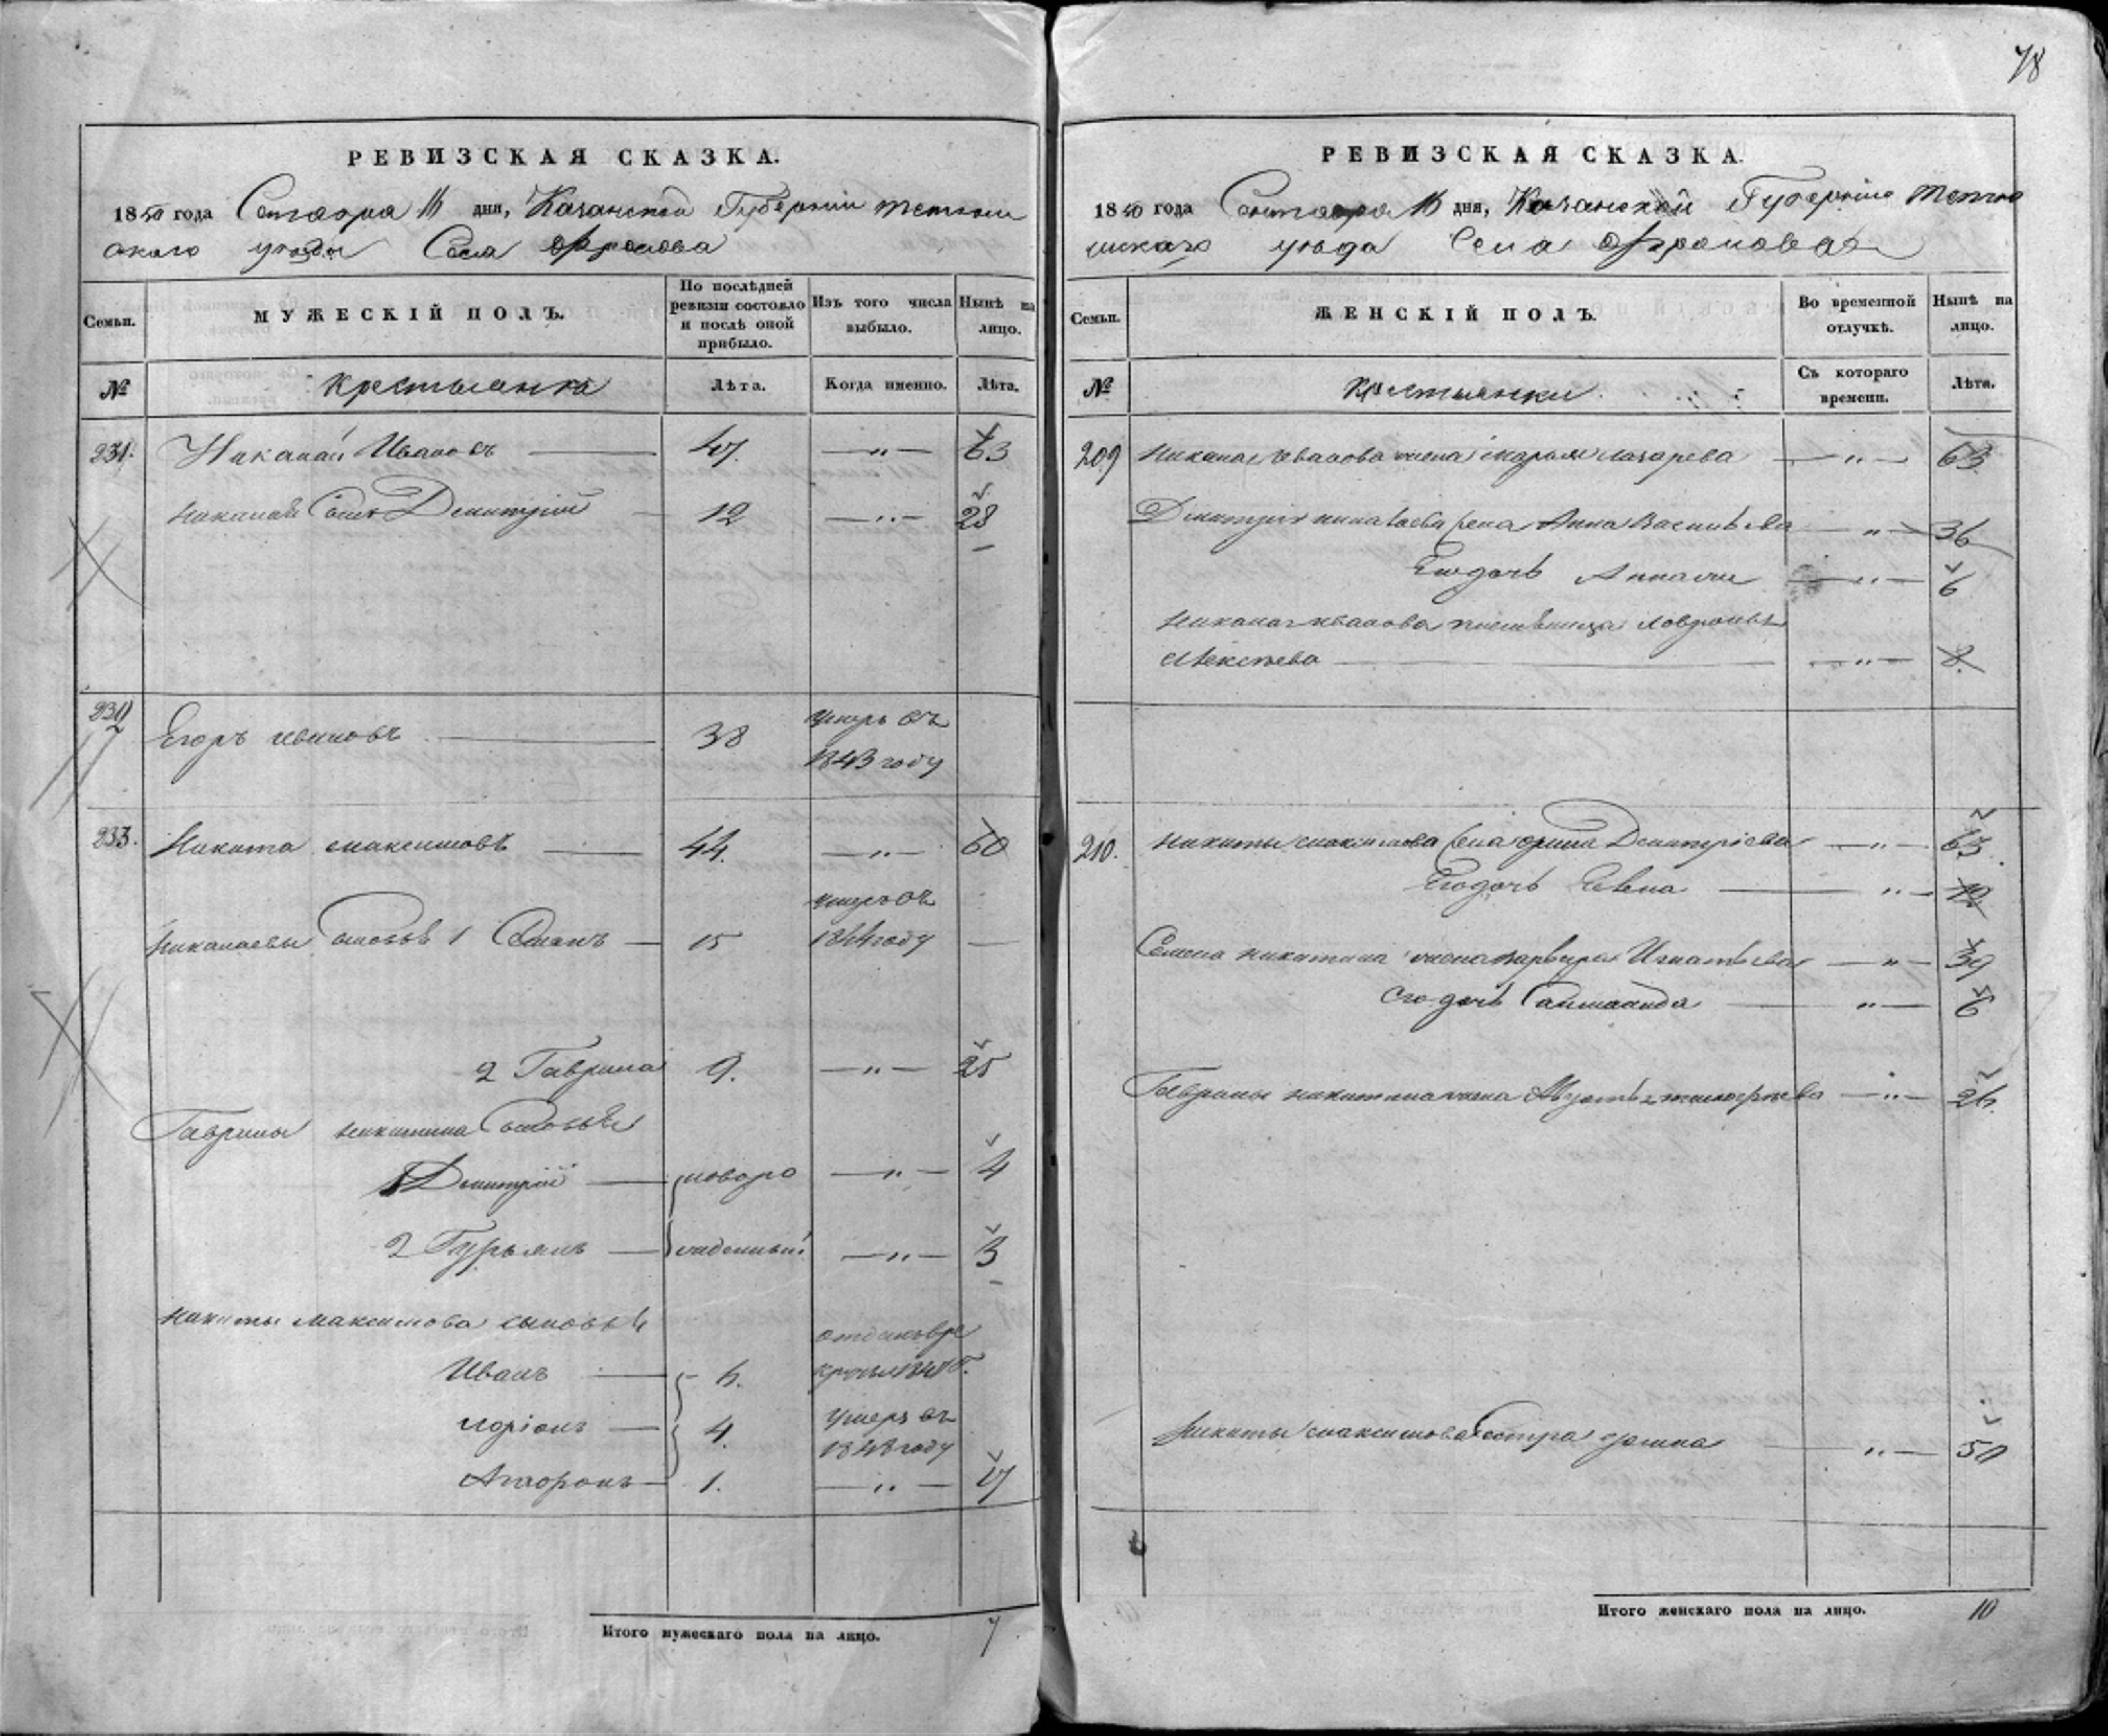 78
РЕВИЗСКАЯ СКАЗКА.
1850 года Сентября 16 дня, Казанской Губернiи Тетюш
скаго уѣзда Села Фролова
Семьи.
МУЖЕСКІЙ ПОЛЪ.
По послѣдней ревизіи состояло и послѣ оной прибыло.
Изъ того числа выбыло.
Нынѣ на лицо.
№
Лѣта.
Когда именно.
Лѣта.
231. Николай Ивановъ 47. —"— 63
Николая сынъ Дмитрій 12 —"— 28
232 Егоръ Ивановъ 38 умеръ въ
1843 году
233. Никита Максимовъ 44. —"— 60
умеръ въ
1 15 1844 году
2 Гаврила 9. —"— 25
Гаврилы Никитина сыновья
1 Дмитрій новоро —"— 4
2 Гурьянъ жденный —"— 3
Никиты Максимова сыновья
Иванъ 6.
Ларіонъ 4. умеръ въ
1848 году
1. —"— 17
Итого мужескаго пола на лицо. 7
РЕВИЗСКАЯ СКАЗКА.
1850 года Сентября 16 дня, Казанской Губернiи Тетю
шскаго уѣзда Села Фролова
Семьи.
ЖЕНСКІЙ ПОЛЪ.
Во временной отлучкѣ.
Нынѣ на лицо.
№
Крестьянки
Съ котораго времени.
Лѣта.
209 Николая Иванова жена Марья Лазарева —"— 63
Дмитрія Николаева жена Анна Васильева —"— 36
Его дочь —"— 6
Николая Иванова
—"— 8.
210. Никиты Максимова жена Дмитріева —"— 63
Его дочь —"— 12
Семена Никитина жена Варвара Игнатьева —"— 39
Его дочь —"— 6
Гаврилы Никитина жена —"— 26.
Никиты Максимова сестра —"— 50
Итого женскаго пола на лицо. 10